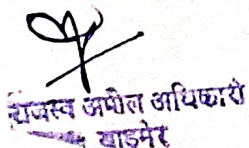 राजस्व अपील अधिकारी
बाड़मेर